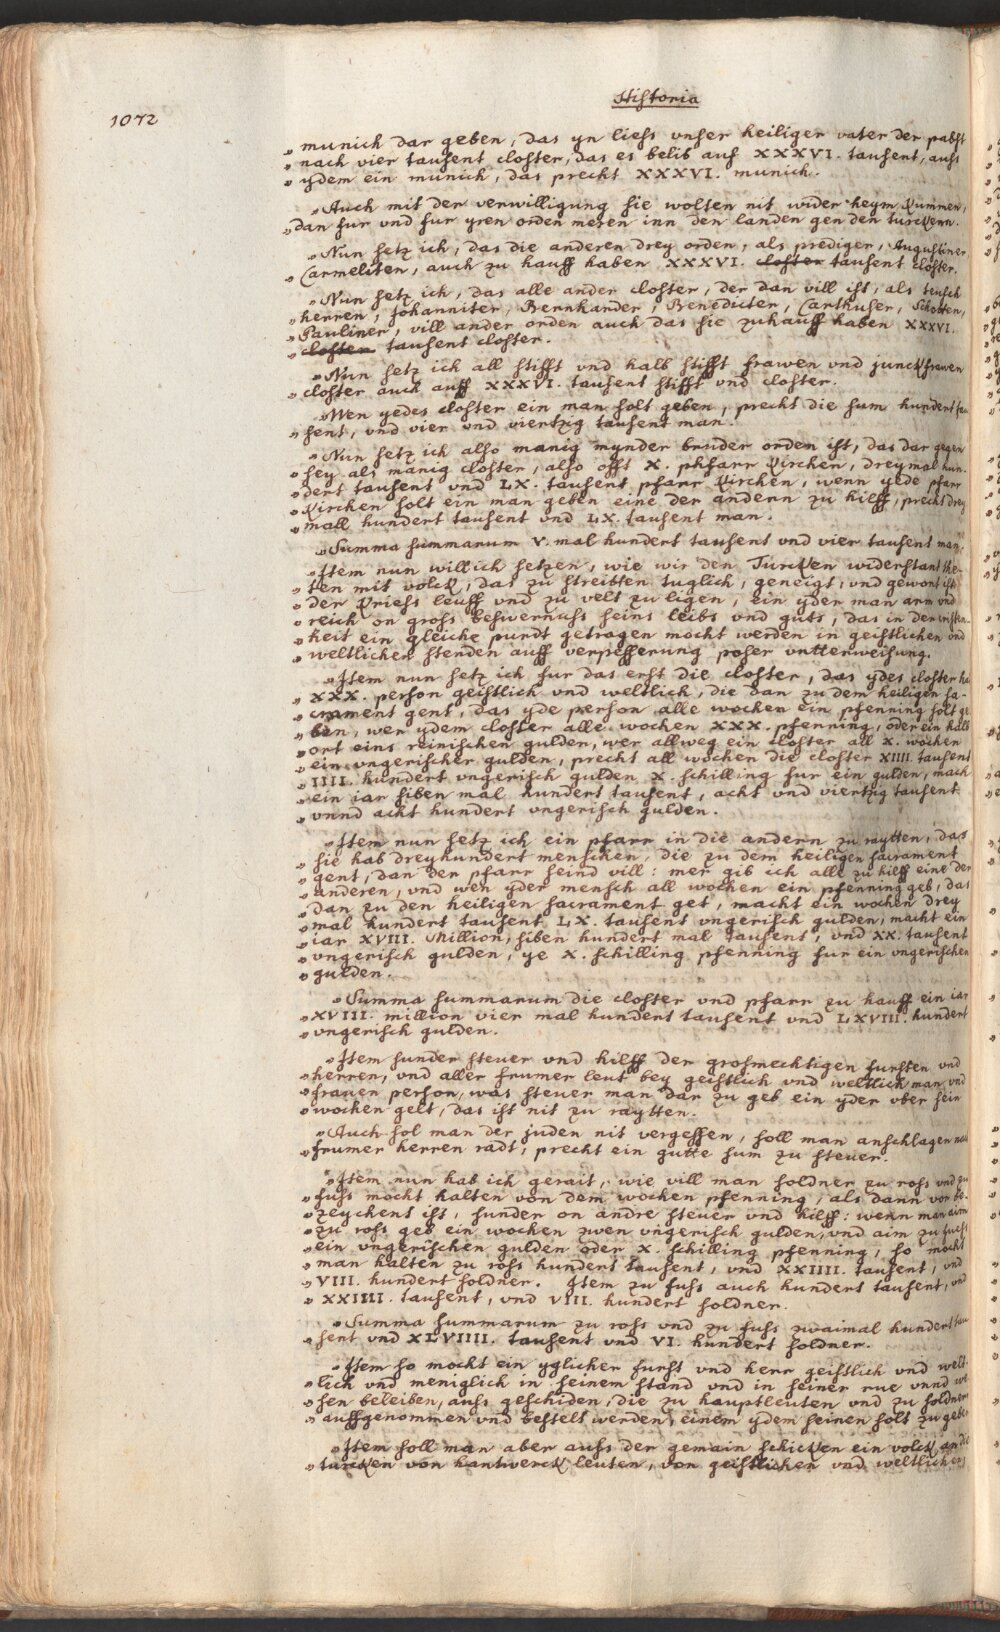 Historia
1072
„ munich dar geben, das yn liess vnser heiliger vater der pabst
„ nach vier tausent closter, das es belib auf XXXVI. tausent, auss
„ ydem ein munich, das precht XXXVI. munich.
„ Auch mit der verwilligung sie wolten nit wider heym kummen,
„ dan fur vnd fur yren orden meren inn den landen gen den turcken.
„ Nun setz ich, das die anderen drey orden, als prediger, Augustiner,
„ Carmeliten, auch zu hauff haben XXXVI. closter tausent closter.
„ Nun setz ich, das alle ander closter, der dan vill ist, als teusch
„ herren, Johanniter, Bernhander, Benedicter, Carthuser, Schotten,
„ Pauliner, vill ander orden auch das sie zuhauff haben XXXVI.
„ closter tausent closter.
„ Nun setz ich all stifft vnd halb stifft frawen vnd junckfrawen
„ closter auch auff XXXVI. tausent stifft vnd closter.
„ Wen yedes closter ein man solt geben, precht die sum hundert tau
„ sent, vnd vier vnd viertzig tausent man.
„ Nun setz ich also manig mynder bruder orden ist, das dar gegen
„ sey als manig closter, also offt X. phfarr kirchen, dreymal hun.
„ dert tausent vnd LX. tausent pfarr kirchen, wenn yede pfarr
„ kirchen solt ein man geben eine der andern zu hilff, precht drey
„ mall hundert tausent vnd LX. tausent man.
„ Summa summarum V. mal hundert tausent vnd vier tausent man.
„ Item nun will ich setzen, wie wir den Turcken widerstant the-
„ ten mit volck, das zu streibten tuglich, geneigt, vnd gewont ist
„ der kriess leuff vnd zu velt zu ligen, ein yder man arm vnd
„ reich on gross beswernuss seins leibs vnd guts, das in der cristen-
„ heit ein gleiche purdt getragen mocht werden in geistlichen vnd
„ weltlichen stenden auff verpesserung poser vntterweisung.
„ Item nun setz ich fur das erst die closter, das ydes closter ha
„ XXX. person geistlich vnd weltlich, die dan zu dem heiligen sa-
„ crament gent, das yde person alle wochen ein pfenning solt ge
„ ben, wer ydem closter alle wochen XXX. pfenning, oder ein halb
„ ort eins reinischen gulden, wer allweg ein closter all X. wochen
„ ein vngerischer gulden, precht all wochen die closter XIIII. tausent
„ IIII. hundert vngerisch gulden X. schilling fur ein gulden, mach
„ ein iar siben mal hundert tausent, acht vnd viertzig tausent
„ vnnd acht hundert vngerisch gulden.
„ Item nun setz ich ein pfarr in die andern zu raytten, das
„ sie hab dreyhundert menschen, die zu dem heiligen sacrament
„ gent, dan der pfarr seind vill: mer gib ich alle zu hilff eine der
„ anderen, vnd wen yder mensch all wochen ein pfenning geb, das
„ dan zu den heiligen sacrament get, macht ein wochen drey
„ mal hundert tausent LX. tausent vngerisch gulden, macht ein
„ iar XVIII. Million, siben hundert mal tausent, vnd XX. tausent
„ vngerisch gulden, ye X. schilling pfenning fur ein vngerischen
„ gulden.
„ Summa summarum die closter vnd pfarr zu hauff ein iar
„ XVIII. million vier mal hundert tausent vnd LXVIII. hundert
„ vngerisch gulden.
„ Item sunder steuer vnd hilff der grosmechtigen fursten vnd
„ herren, vnd aller frumer leut bey geistlich vnd weltlich man vnd
„ frauen person, was steuer man dar zu geb ein yder vber sein
„ wochen gelt, das ist nit zu raytten.
„ Auch sol man der juden nit vergessen, soll man anschlagen nach
„ frumer herren radt, precht ein gutte sum zu steuer.
„ Item nun hab ich gerait, wie vill man soldner zu ross vnd zu
„ fuss mocht halten von dem wochen pfenning, als dann vor be-
„ zeychent ist, sunder on andre steuer vnd hilff: wenn man aim
„ zu ross geb ein wochen zwen vngerisch gulden, vnd aim zu fuess
„ ein vngerischen gulden oder X. schilling pfenning, so mocht
„ man halten zu ross hundert tausent, vnd XXIIII. tausent, vnd
„ VIII. hundert soldner. Item zu fuss auch hundert tausent, vnd
„ XXIIII. tausent, vnd VIII. hundert soldner.
„ Summa summarum zu ross vnd zu fuss zwaimal hundert tau
„ sent vnd XLVIIII. tausent vnd VI. hundert soldner.
„ Item so mocht ein yglicher furst vnd herr geistlich vnd welt-
„ lich vnd meniglich in seinem stand vnd in seiner rue vnnd we
„ sen beleiben, auss geschiden, die zu hauptleuten vnd zu soldner
„ auffgenommen vnd bestelt werden, einem ydem seinen solt zu geben
„ Item soll man aber auss der gemain schicken ein volck an die
„ turcken von hantwerck leuten, von geistlichen vnd weltlichen,